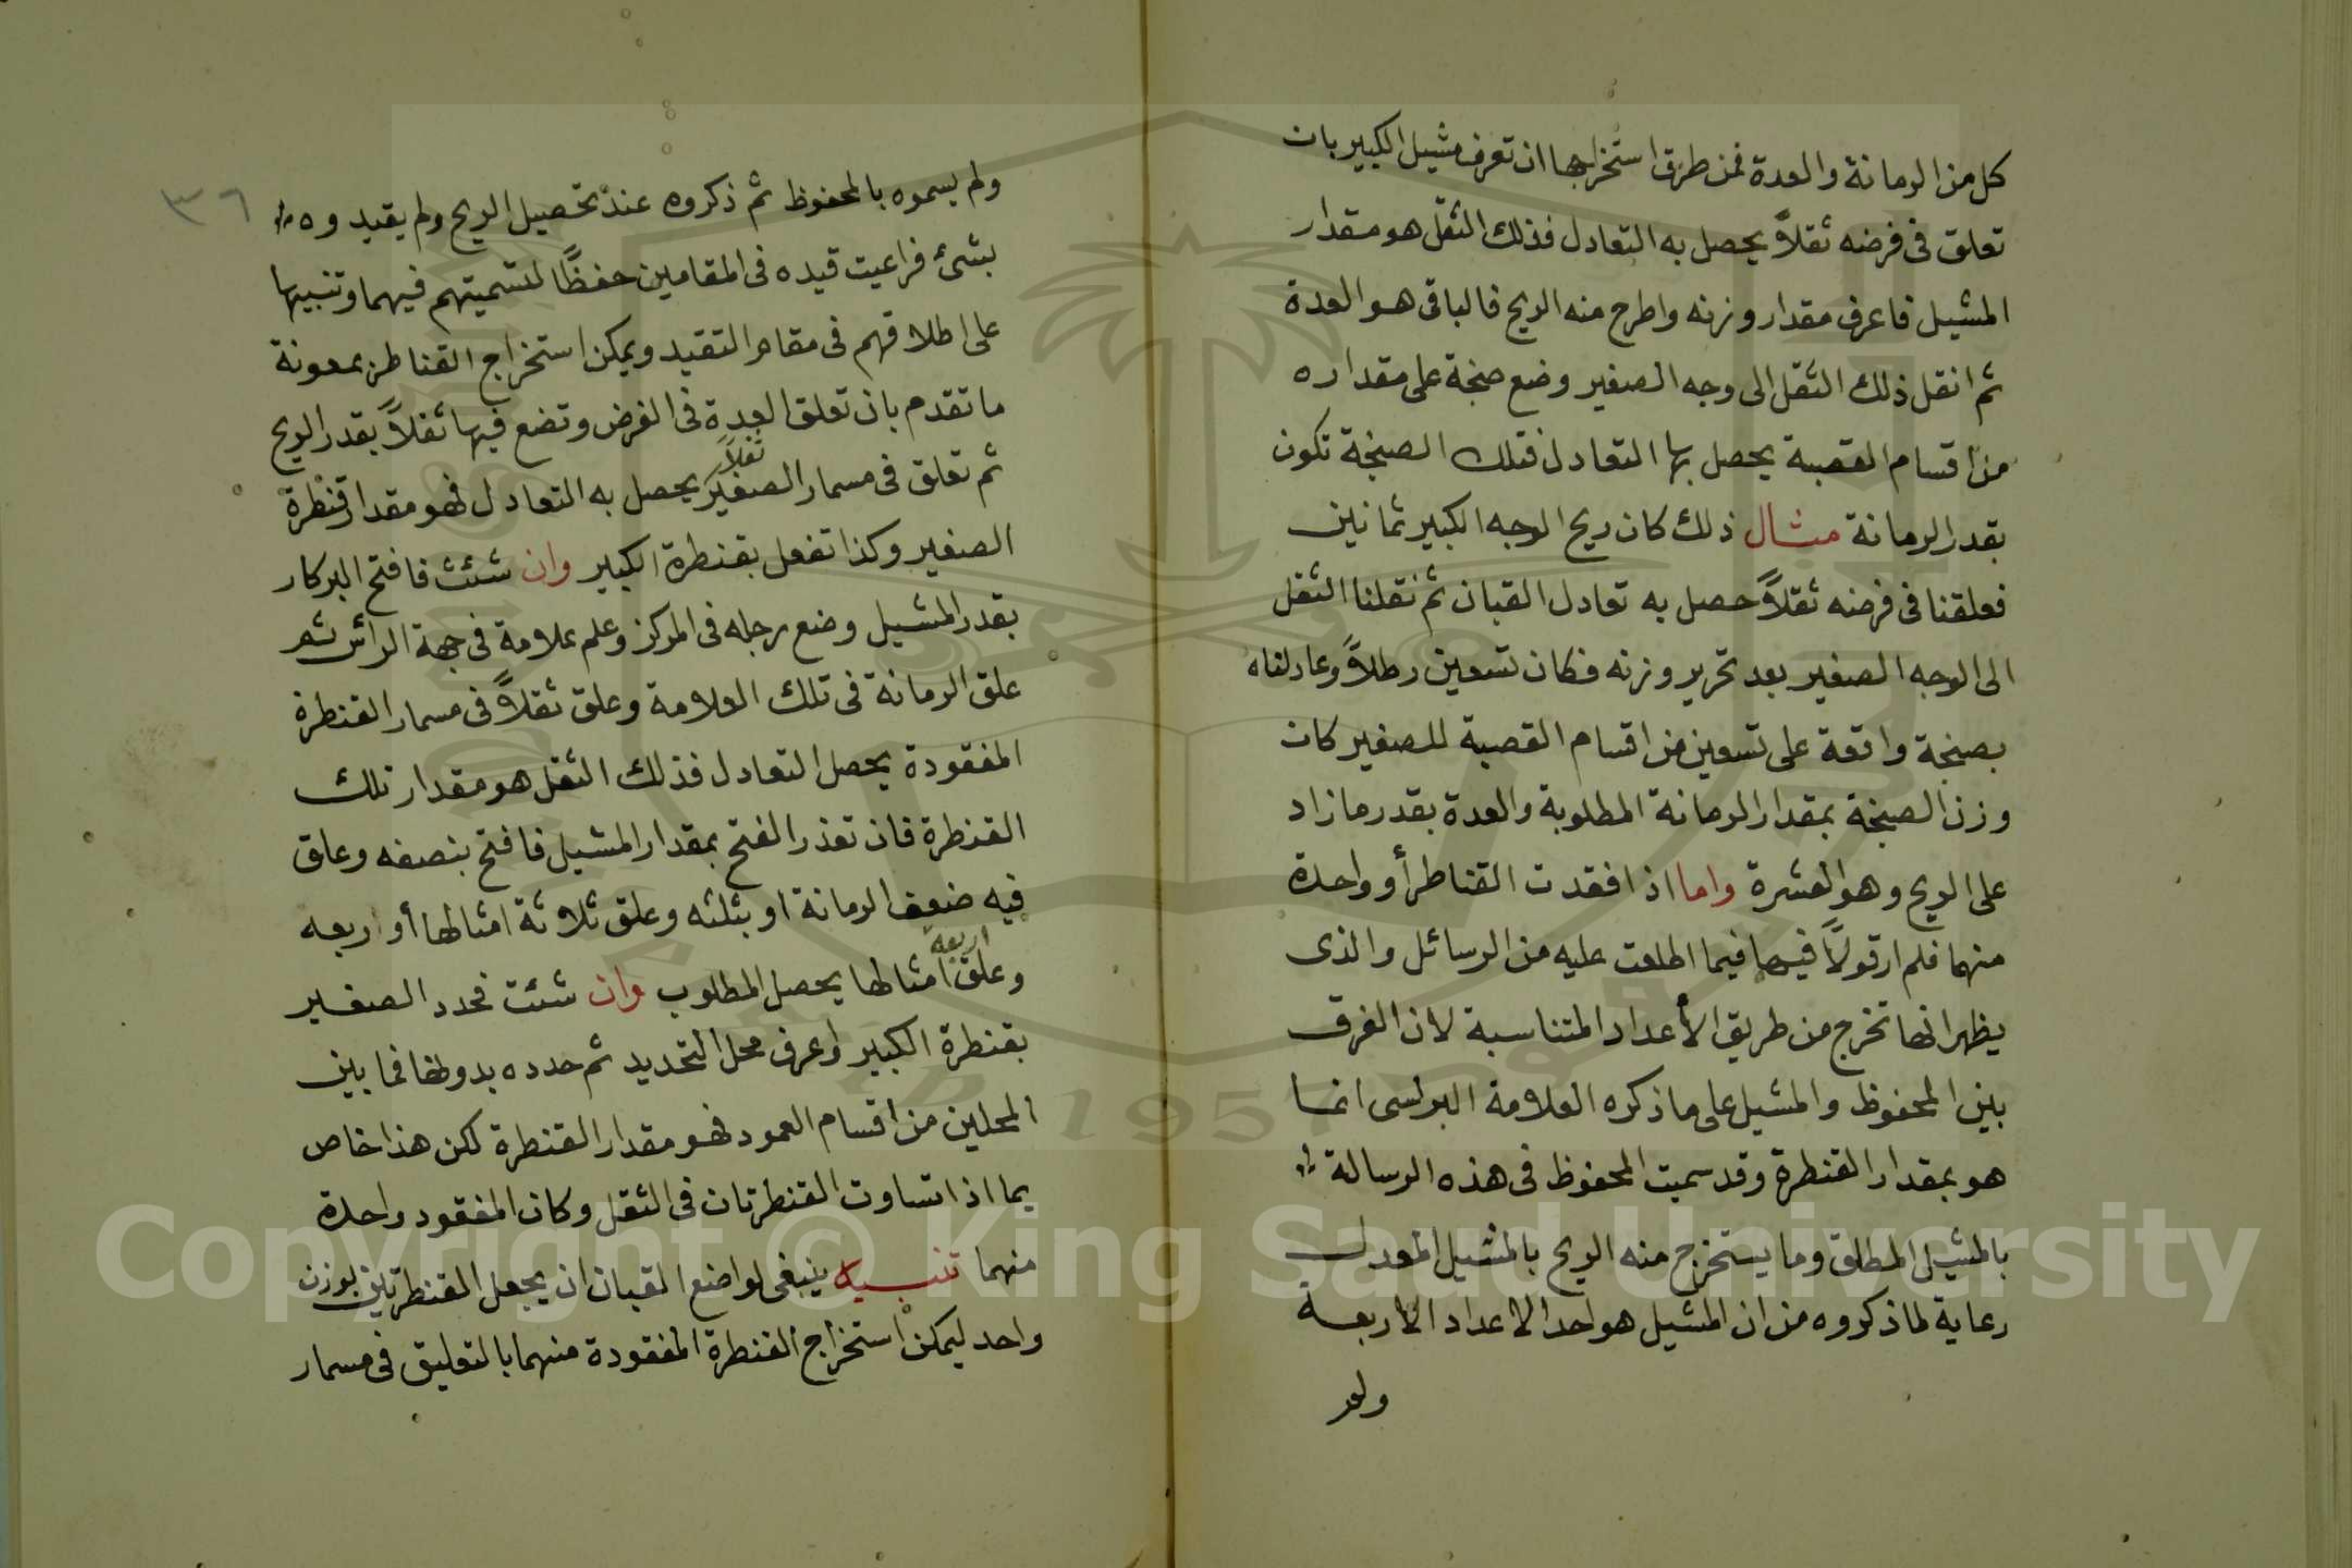 كل من الرمانة والعدة فمن طرق استخراجها ان تعرف مشيل الكبير بان
تعلق فى فرضه ثقلاً يحصل به التعادل فذلك الثقل هو مقدار
المشيل فاعرف مقدار وزنه واطرح منه الريح فالباقى هو العدة
ثم انقل ذلك الثقل الى وجه الصغير وضع صنجة على مقداره
من اقسام القصبة يحصل بها التعادل فتلك الصنجة تكون
بقدر الرمانة مثال ذلك كان ريح الوجه الكبير ثمانين
فعلقنا فى فرضه ثقلاً حصل به تعادل القبان ثم نقلنا الثقل
الى الوجه الصغير بعد تحرير وزنه فكان تسعين رطلاً وعادلناه
بصنجة واقعة على تسعين من اقسام القصبة للصغير كان
وزن الصنجة بمقدار الرمانة المطلوبة والعدة بقدر ما زاد
على الريح وهو العشرة واما اذا فقدت القناطر أو واحدة
منهما فلم ار قولاً فيها فيما اطلعت عليه من الرسائل والذى
يظهر انها تخرج من طريق الأعداد المتناسبة لان الفرق
بين المحفوظ والمشيل على ما ذكره العلامة البرلسى انما
هو بمقدار القنطرة وقد سميت المحفوظ فى هذه الرسالة
بالمشيل المطلق وما يستخرج منه الريح بالمشيل المعدل
رعاية لما ذكروه من ان المشيل هو احد الاعداد الاربعة
ولم
٣٦
ولم يسموه بالمحفوظ ثم ذكروه عند تحصيل الريح ولم يقيدوه
بشئ فراعيت قيده فى المقامين حفظًا لتسميتهم فيهما وتنبيها
على اطلاقهم فى مقام التقيد ويمكن استخراج القناطر بمعونة
ما تقدم بان تعلق العدة فى الفرض وتضع فيها ثقلاً بقدر الريح
ثم تعلق فى مسمار الصغير ثقلاً يحصل به التعادل فهو مقدار قنطرة
الصغير وكذا تفعل بقنطرة الكبير وان شئت فافتح البركار
بقدر المشيل وضع رجله فى المركز وعلم علامة فى جهة الرأس ثم
علق الرمانة فى تلك العلامة وعلق ثقلاً فى مسمار القنطرة
المفقودة يحصل التعادل فذلك الثقل هو مقدار تلك
القنطرة فان تعذر الفتح بمقدار المشيل فافتح بنصفه وعلق
فيه ضعف الرمانة او بثلثه وعلق ثلاثة امثالها أو ربعه
وعلق اربعة امثالها يحصل المطلوب وان شئت فحدد الصغير
بقنطرة الكبير واعرف محل التحديد ثم حدده بدونها فما بين
المحلين من اقسام العمود فهو مقدار القنطرة لكن هذا خاص
بما اذا تساوت القنطرتان فى الثقل وكان المفقود واحدة
منهما تنبيه ينبغى لواضع القبان ان يجعل القنطرتين بوزن
واحد ليمكن استخراج القنطرة المفقودة منهما بالتعليق فى مسمار
Copyright © King Saud University
1957